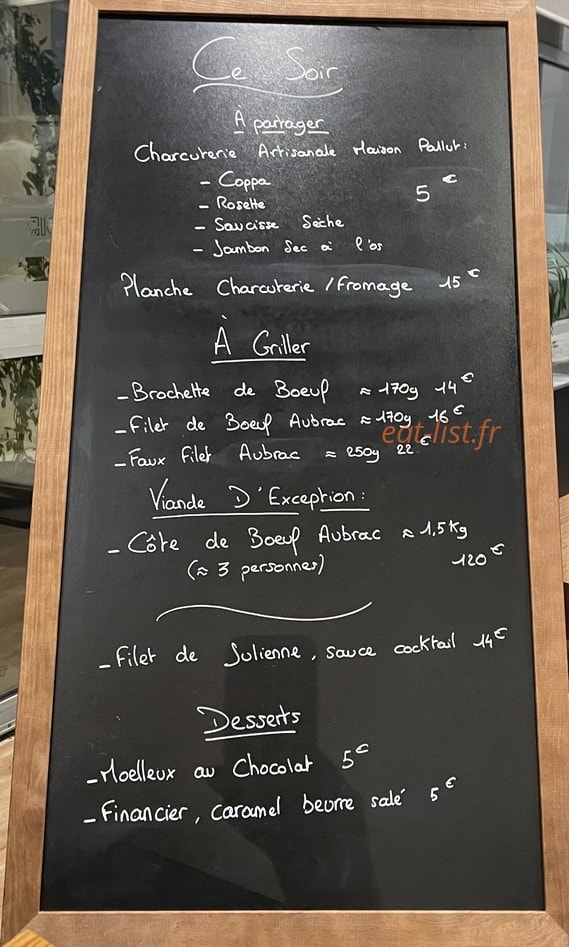 Ce Soir
À partager
Charcuterie Artisanale Maison Pallut :
- Coppa
5 €
- Rosette
- Saucisse Sèche
- Jambon Sec à l'os
Planche Charcuterie / Fromage 15 €
À Griller
- Brochette de Boeuf ≈ 170g 14 €
- Filet de Boeuf Aubrac ≈ 170g 16 €
eat-list.fr
- Faux Filet Aubrac ≈ 250g 22 €
Viande D'Exception :
- Côte de Boeuf Aubrac ≈ 1,5 Kg
(≈ 3 personnes) 120 €
- Filet de Julienne, sauce cocktail 14 €
Desserts
- Moelleux au Chocolat 5 €
- Financier, caramel beurre salé 5 €